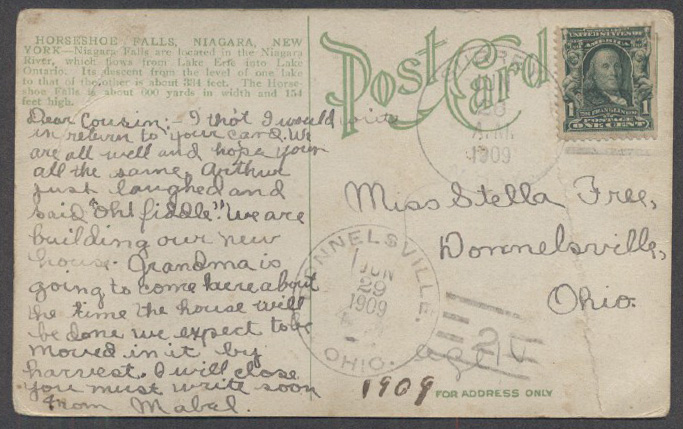 HORSESHOE FALLS, NIAGARA, NEW
YORK—Niagara Falls are located in the Niagara
River, which flows from Lake Erie into Lake
Ontario. Its descent from the level of one lake
to that of the other is about 334 feet. The Horse-
shoe Falls is about 600 yards in width and 154
feet high.
Dear Cousin:- I thot I would write
in return to your card. We
are all well and hope your
all the same. Arthur
just laughed and
said "Oh! fiddle." We are
building our new
house. Grandma is
going to come here about
the time the house will
be done we expect to be
moved in it by
harvest. I will close
you must write soon
From Mabel.
Post Card
A.M.
1909
UNITED STATES OF
AMERICA
1 1
POSTAGE
ONE CENT
Miss Stella Free,
Donnelsville,
Ohio.
DENNELSVILLE,
JUN
29
1909
OHIO.
2
age 14
1909
FOR ADDRESS ONLY